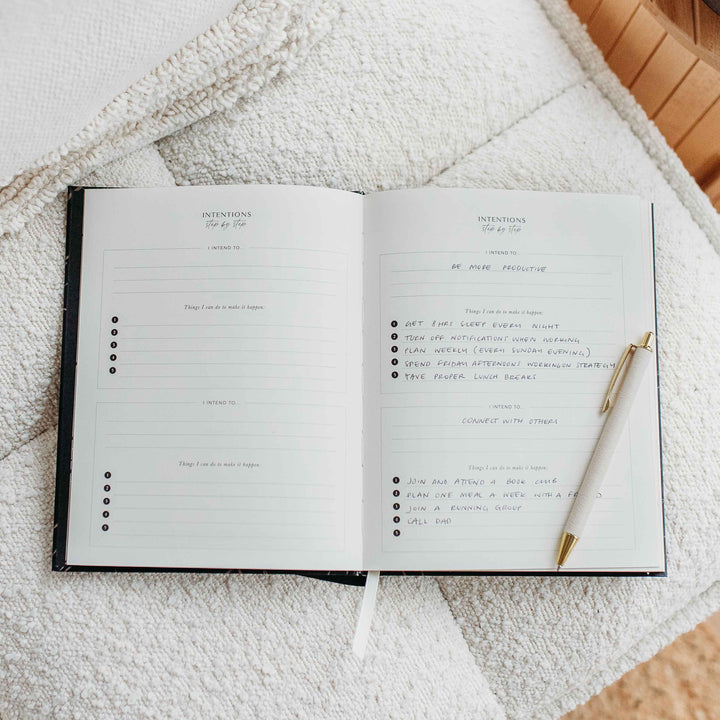 INTENTIONS
step by step
I INTEND TO...
Things I can do to make it happen:
1
2
3
4
5
I INTEND TO...
Things I can do to make it happen:
1
2
3
4
5
INTENTIONS
step by step
I INTEND TO...
BE MORE PRODUCTIVE
Things I can do to make it happen:
1 GET 8HRS SLEEP EVERY NIGHT
2 TURN OFF NOTIFICATIONS WHEN WORKING
3 PLAN WEEKLY (EVERY SUNDAY EVENING)
4 SPEND FRIDAY AFTERNOONS WORKING ON STRATEGY
5 TAKE PROPER LUNCH BREAKS
I INTEND TO...
CONNECT WITH OTHERS
Things I can do to make it happen:
1 JOIN AND ATTEND A BOOK CLUB
2 PLAN ONE MEAL A WEEK WITH A
3 JOIN A RUNNING GROUP
4 CALL DAD
5